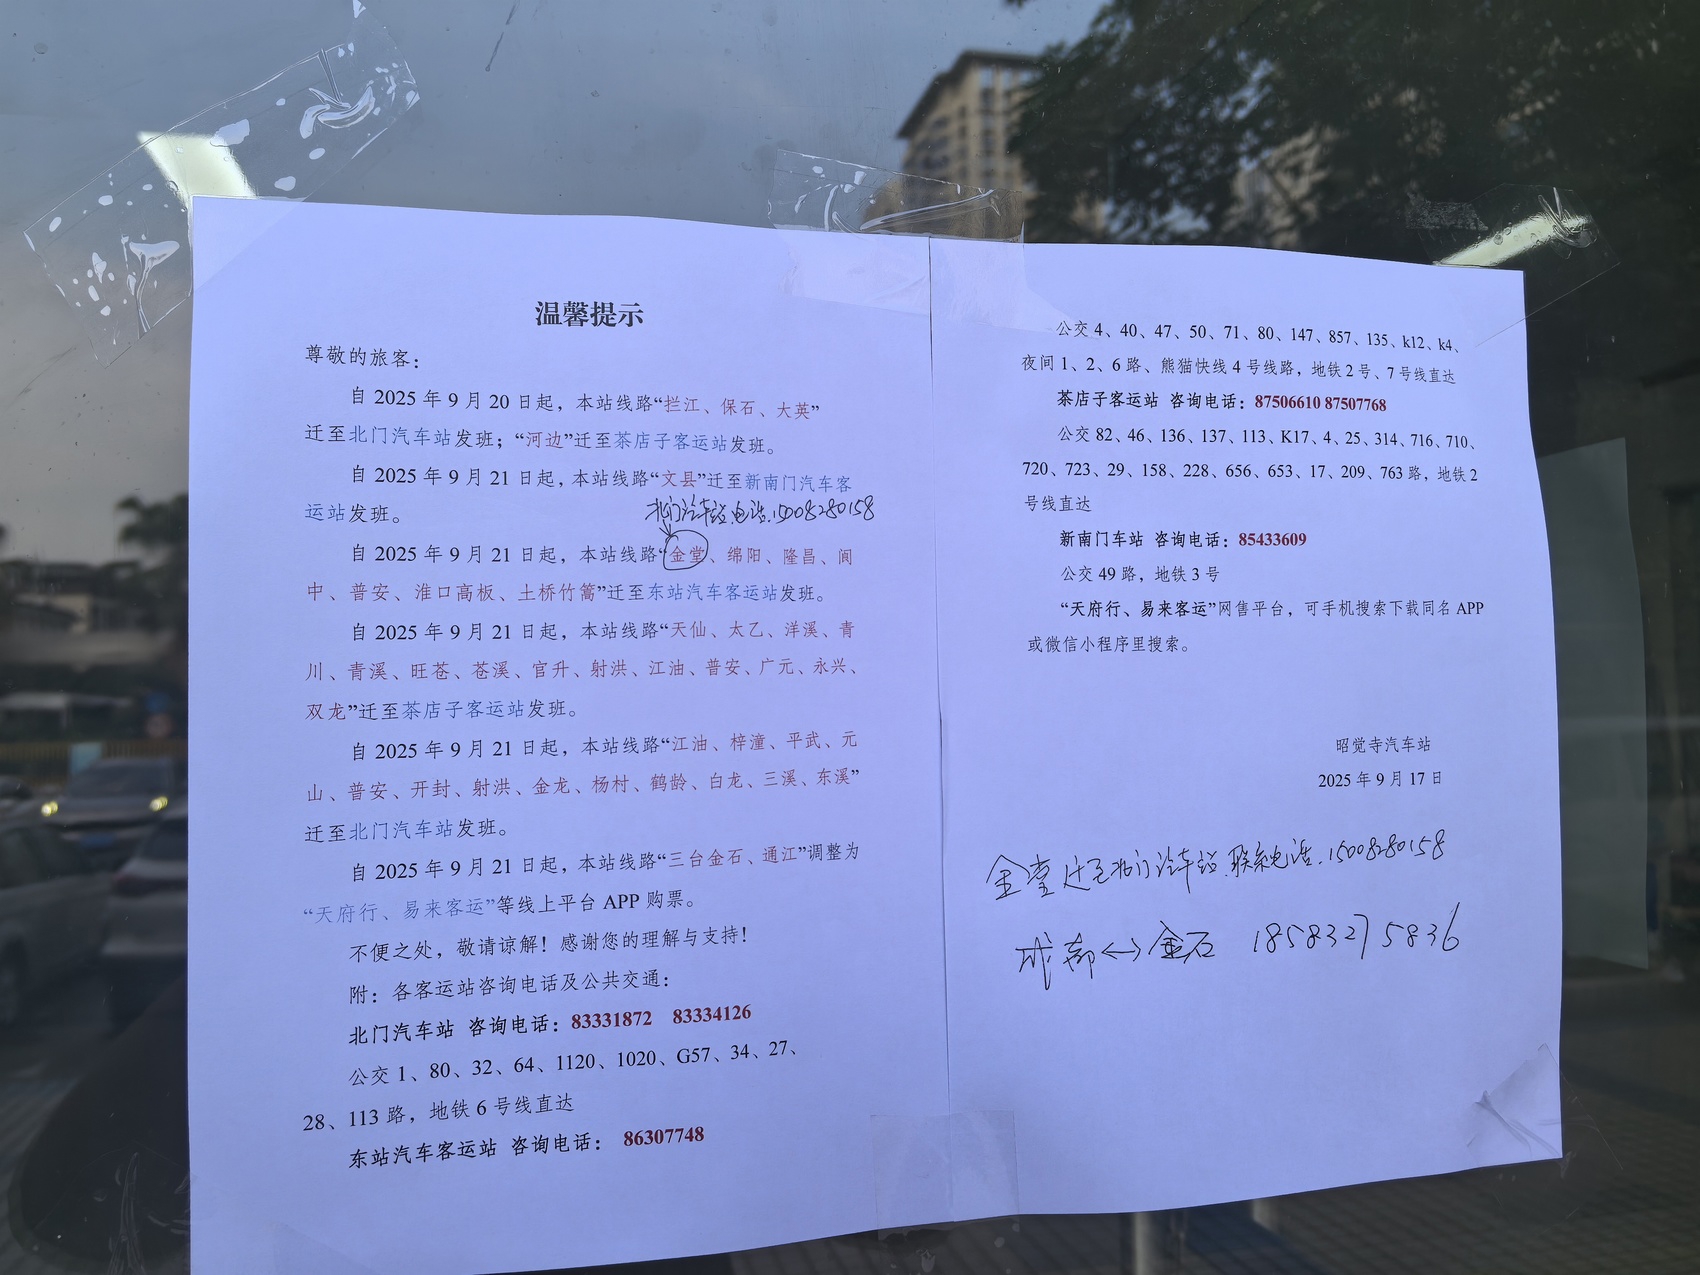 温馨提示
尊敬的旅客：
自 2025 年 9 月 20 日起，本站线路“拦江、保石、大英”
迁至北门汽车站发班；“河边”迁至茶店子客运站发班。
自 2025 年 9 月 21 日起，本站线路“文县”迁至新南门汽车客
运站发班。
北门汽车站.电话.15008280158
自 2025 年 9 月 21 日起，本站线路“金堂、绵阳、隆昌、阆
中、普安、淮口高板、土桥竹篙”迁至东站汽车客运站发班。
自 2025 年 9 月 21 日起，本站线路“天仙、太乙、洋溪、青
川、青溪、旺苍、苍溪、官升、射洪、江油、普安、广元、永兴、
双龙”迁至茶店子客运站发班。
自 2025 年 9 月 21 日起，本站线路“江油、梓潼、平武、元
山、普安、开封、射洪、金龙、杨村、鹤龄、白龙、三溪、东溪”
迁至北门汽车站发班。
自 2025 年 9 月 21 日起，本站线路“三台金石、通江”调整为
“天府行、易来客运”等线上平台 APP 购票。
不便之处，敬请谅解！感谢您的理解与支持！
附：各客运站咨询电话及公共交通：
北门汽车站 咨询电话：83331872 83334126
公交 1、80、32、64、1120、1020、G57、34、27、
28、113 路，地铁 6 号线直达
东站汽车客运站 咨询电话： 86307748
公交 4、40、47、50、71、80、147、857、135、k12、k4、
夜间 1、2、6 路、熊猫快线 4 号线路，地铁 2 号、7 号线直达
茶店子客运站 咨询电话：87506610 87507768
公交 82、46、136、137、113、K17、4、25、314、716、710、
720、723、29、158、228、656、653、17、209、763 路，地铁 2
号线直达
新南门车站 咨询电话：85433609
公交 49 路，地铁 3 号
“天府行、易来客运”网售平台，可手机搜索下载同名 APP
或微信小程序里搜索。
昭觉寺汽车站
2025 年 9 月 17 日
金堂迁至北门汽车站.联系电话.15008280158
成都↔金石 18583275836